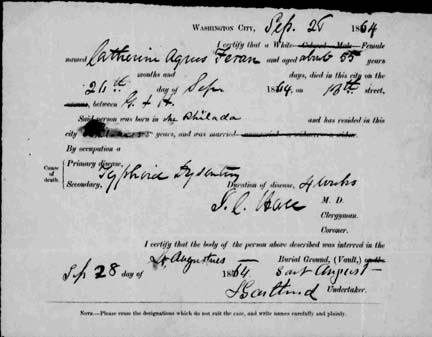 WASHINGTON CITY, Sep. 28 1864
I certify that a White Colored Male Female
named Catherine Agnes Feran and aged about 55 years
months and days, died in this city on the
26th day of Sep 1864, on 13th street,
between G & H.
Said person was born in Philada and has resided in this
city years, and was married
By occupation a
Cause of death.
Primary disease, Typhoid Dysentery
Secondary, Duration of disease, 4 weeks
J. C. Hall M. D.
Clergyman.
Coroner.
I certify that the body of the person above described was interred in the
St Augustines Burial Ground, (Vault,)
Sep 28 day of 1864
Undertaker.
NOTE.—Please erase the designations which do not suit the case, and write names carefully and plainly.